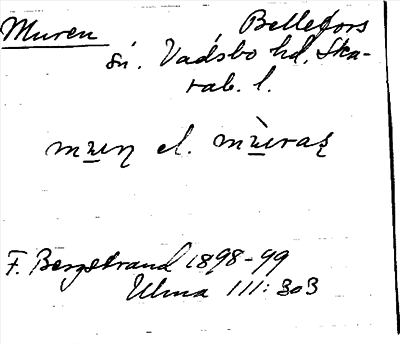 Muren Bellefors
sn. Vadsbo hd. Ska-
rab. l.
mu̲ɳ el. mù̲raʂ
F. Bergstrand 1898-99
Ulma 111: 303